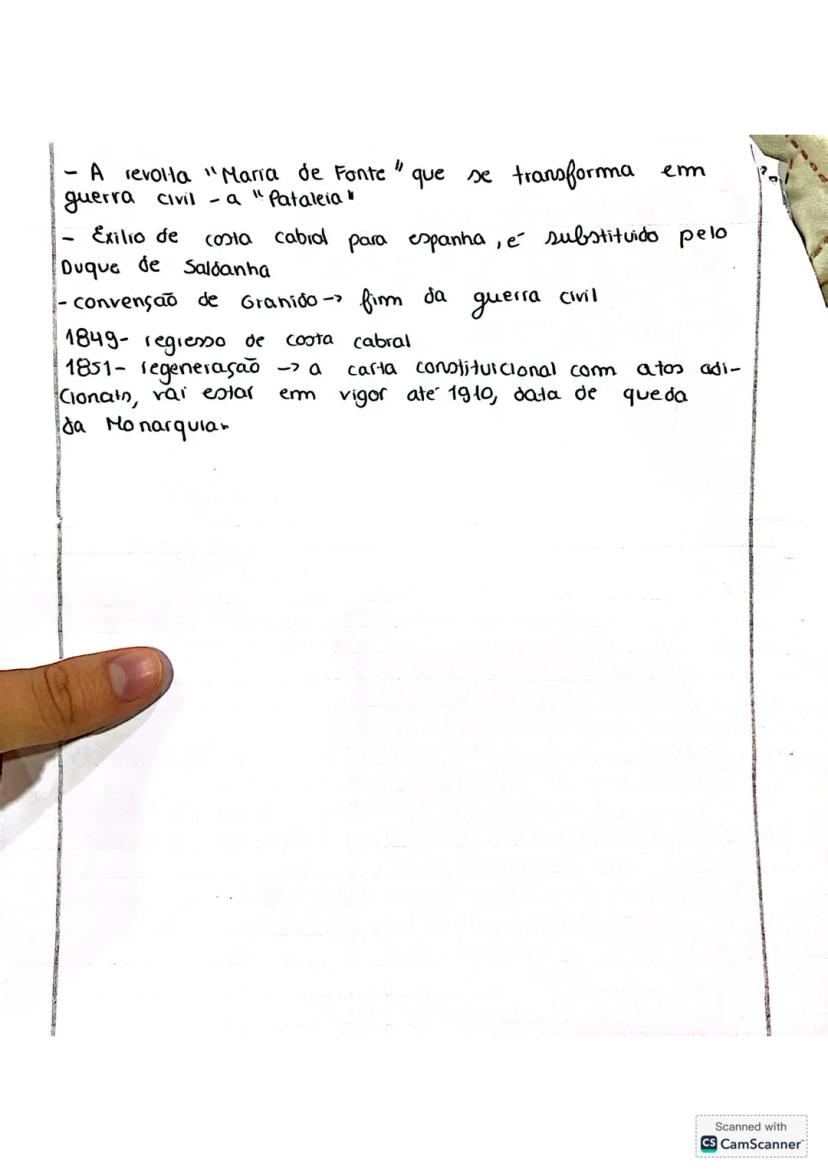 - A revolta "Maria de Fonte" que se transforma em
guerra civil - a "Pataleia"
- Exílio de costa cabral para espanha, é substituido pelo
Duque de Saldanha
- convenção de Granido -> fim da guerra civil
1849- regresso de costa cabral
1851- regeneração -> a carta constituicional com atos adi-
cionais, vai estar em vigor até 1910, data de queda
da Monarquia.
Scanned with
CS CamScanner